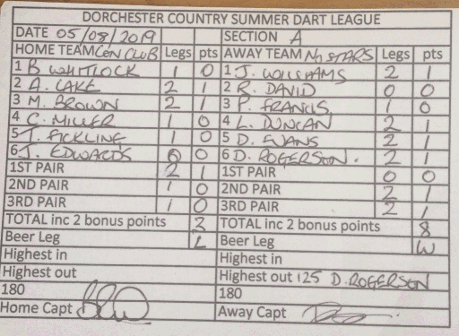 DORCHESTER COUNTRY SUMMER DART LEAGUE
DATE 05/08/2019 SECTION A
HOME TEAM CEN CLUB Legs pts AWAY TEAM No STARS Legs pts
1 B WHITLOCK 1 0 1 J. WILLIAMS 2 1
2 A. LAKE 2 1 2 R. DAVID 0 0
3 M. BROWN 2 1 3 P. FRANCIS 1 0
4 C. MILLER 1 0 4 L. DUNCAN 2 1
5 T. FICKLING 1 0 5 D. EVANS 2 1
6 J. EDWARDS 0 0 6 D. ROGERSON. 2 1
1ST PAIR 2 1 1ST PAIR 0 0
2ND PAIR 1 0 2ND PAIR 2 1
3RD PAIR 1 0 3RD PAIR 2 1
TOTAL inc 2 bonus points 3 TOTAL inc 2 bonus points 8
Beer Leg L Beer Leg W
Highest in Highest in
Highest out Highest out 125 D. ROGERSON
180 180
Home Capt Away Capt